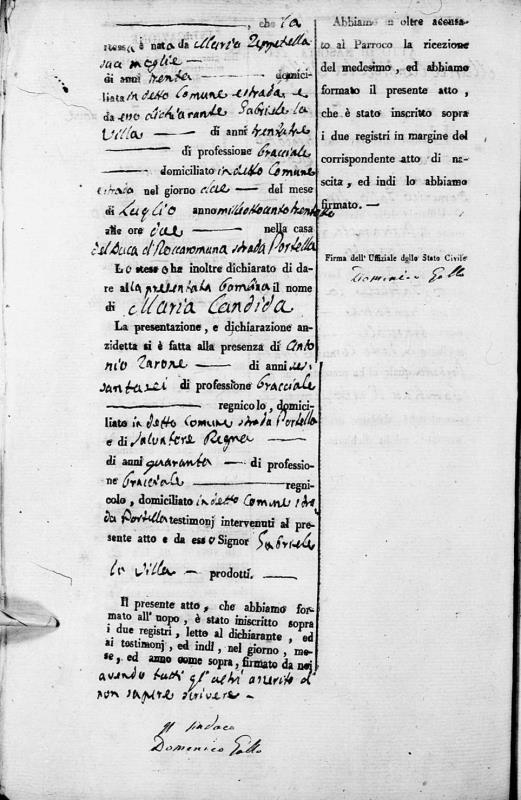 ———, che la
stessa è nata da Maria Zeppetella
sua moglie —
di anni trenta — domici-
liata in detto Comune e strada e
da esso dichiarante Gabriele la
Villa — di anni trentatre
— di professione bracciale
— domiciliato in detto Comune
e strada nel giorno due — del mese
di Luglio anno milleottocento trenta
alle ore due — nella casa
del Duca di Roccaromana strada Portella
Lo stesso che inoltre dichiarato di da-
re alla presentata bambina il nome
di Maria Candida
La presentazione, e dichiarazione an-
zidetta si è fatta alla presenza di Anto
nio Zarone — di anni ses-
santasei di professione bracciale
— regnicolo, domici-
liato in detto Comune strada Portella
e di Salvatore Regna —
di anni quaranta — di professio-
ne bracciale — regni-
colo, domiciliato in detto Comune stra
da Portella testimonj intervenuti al pre-
sente atto e da esso Signor Gabriele
la Villa — prodotti. —
Il presente atto, che abbiamo for-
mato all' uopo, è stato iniscritto sopra
i due registri, letto al dichiarante, ed
ai testimonj, ed indi, nel giorno, me-
se, ed anno come sopra, firmato da noi
avendo tutti gl'altri asserito di
non sapere scrivere —
Il Sindaco
Domenico Gallo
Abbiamo in oltre accusa-
to al Parroco la ricezione
del medesimo, ed abbiamo
formato il presente atto,
che è stato inscritto sopra
i due registri in margine del
corrispondente atto di na-
scita, ed indi lo abbiamo
firmato. —
Firma dell' Uffiziale dello Stato Civile
Domenico Gallo